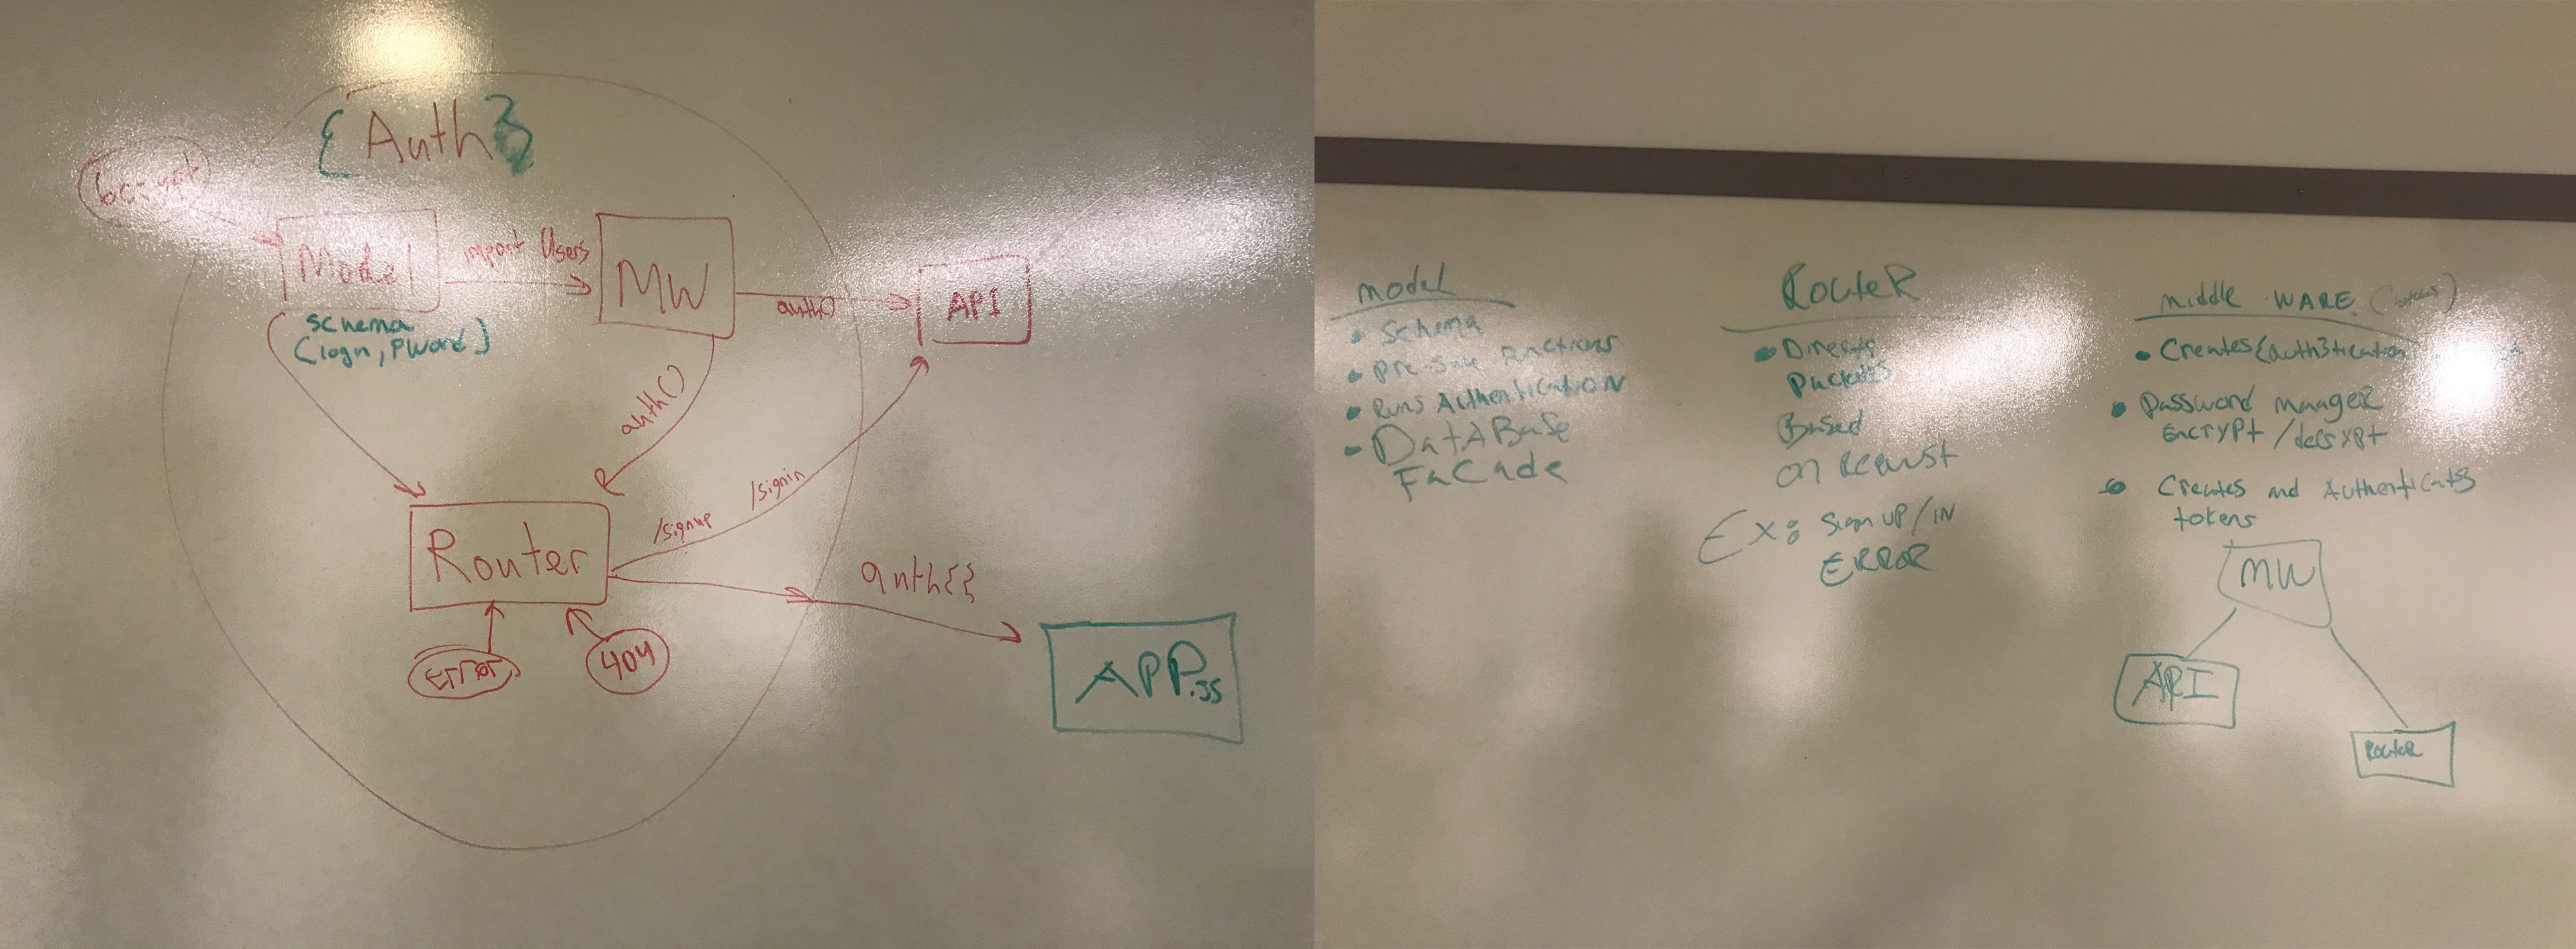 {Auth}
Model
import Users
MW
auth()
API
schema
(login, Pword)
auth()
/signup
/signin
Router
auth{}
Error
404
APP.JS
model
• Schema
• pre-save functions
• Runs Authentication
• DatABase
FaCade
RouteR
• Directs
packets
Based
on Request
Ex: Sign up/IN
ERROR
middle WARE
• Creates {auth}tication
• Password manager
Encrypt/decrypt
• Creates and Authenticates
tokens
MW
API
RouteR